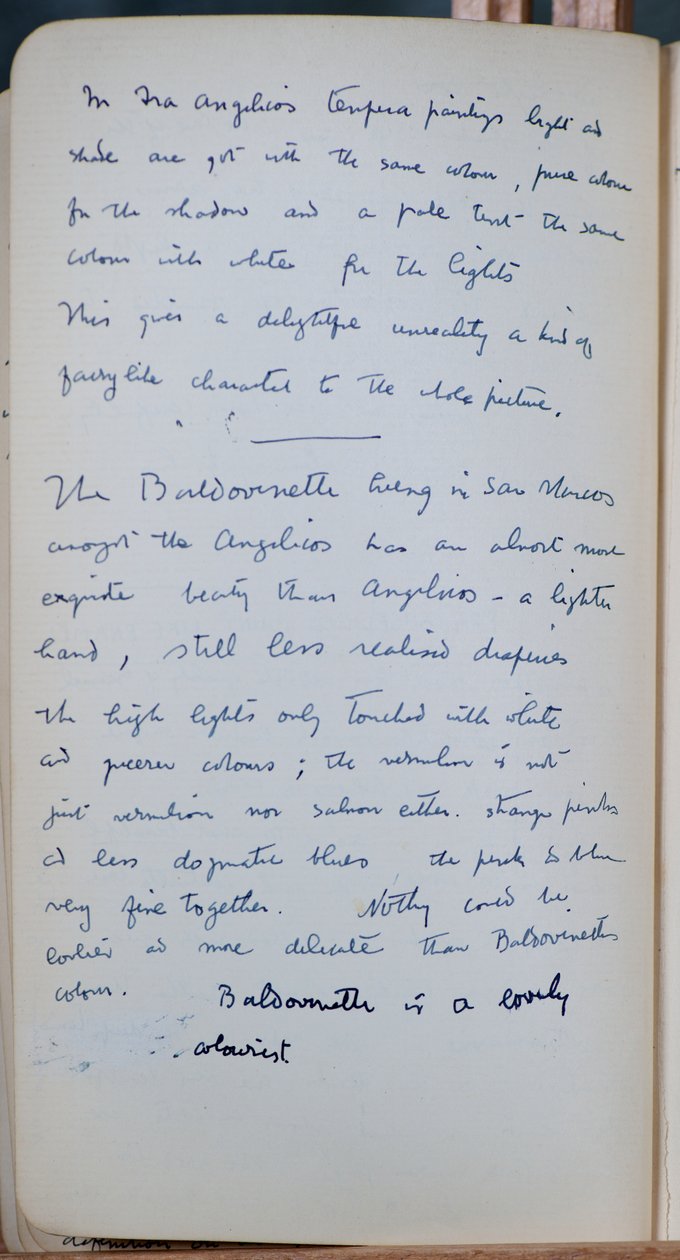 In Fra Angelicos tempera paintings light and
shade are got with the same colour, pure colour
for the shadow and a pale tint the same
colour with white for the lights
This gives a delightful unreality a kind of
fairylike character to the whole picture.
The Baldovinette hung in San Marcos
amongst the Angelicos has an almost more
exquisite beauty than Angelicos - a lighter
hand, still less realised draperies
the high lights only touched with white
and purer colours; the vermilion is not
just vermilion nor salmon either. strange pinks
and less dogmatic blues the pinks & blue
very fine together. Nothing could be
and more delicate than Baldovinettes
colour. Baldovinette is a lovely
colourist.